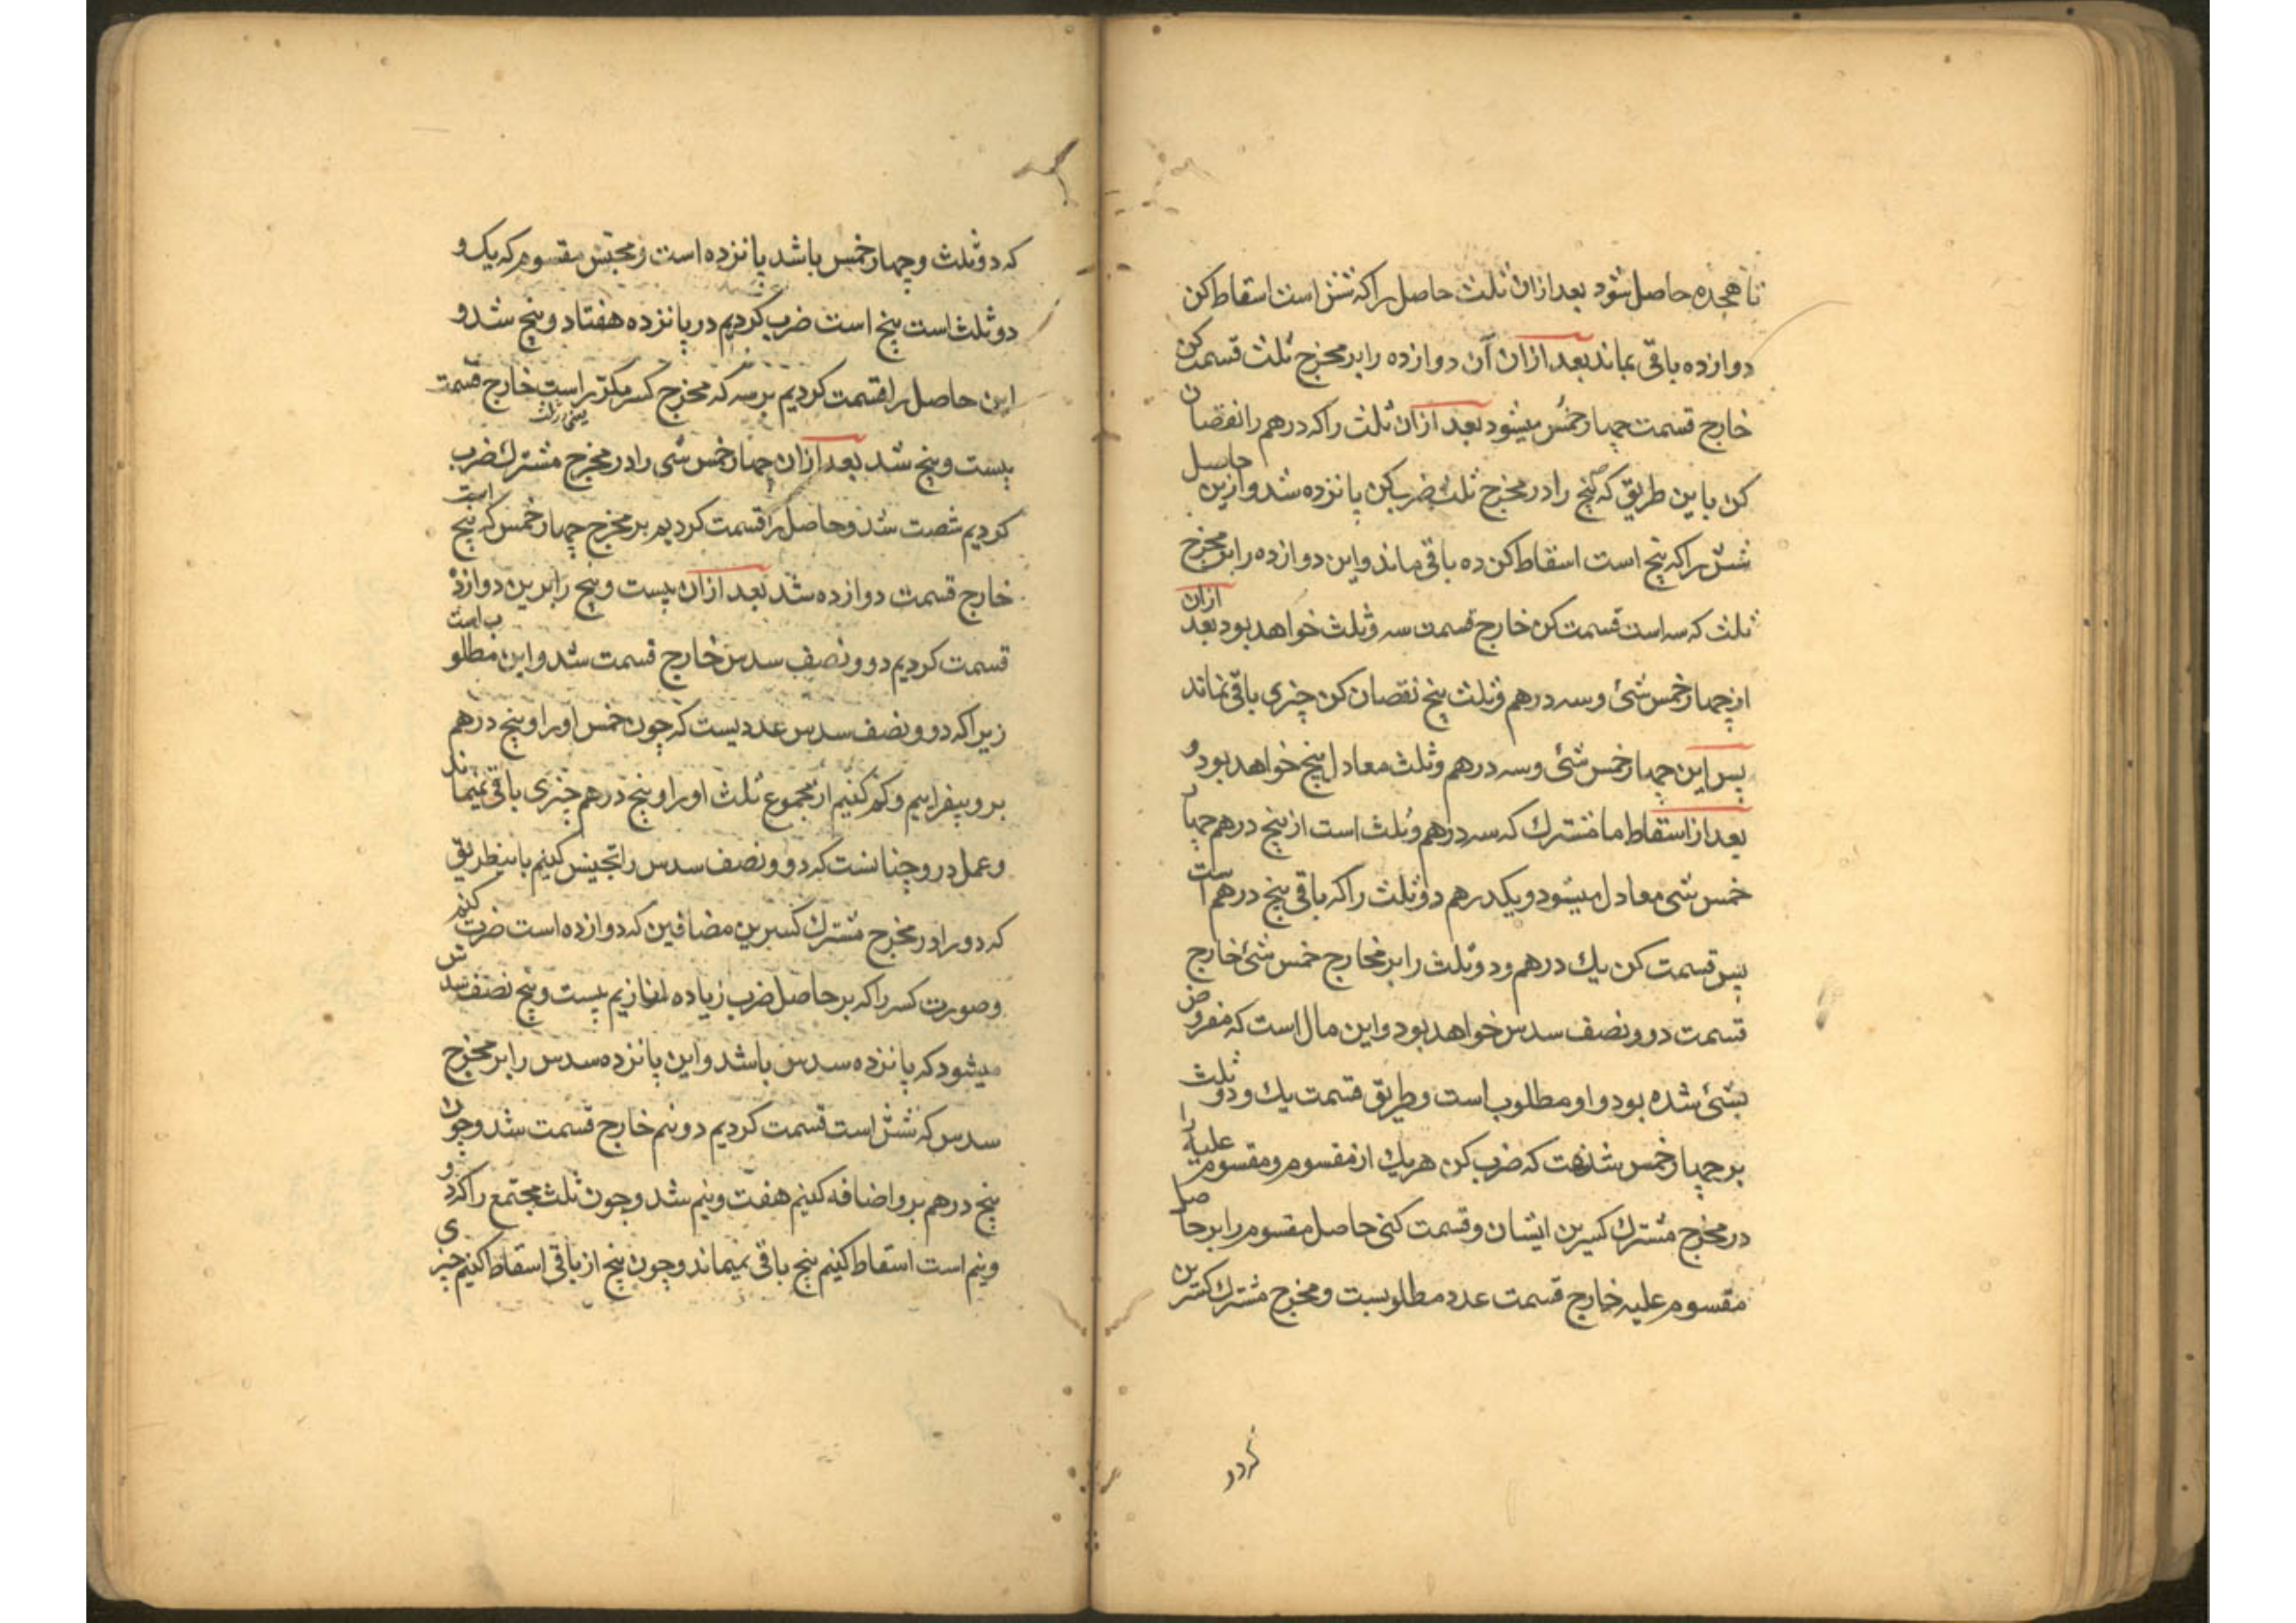 تا هجده حاصل شود بعد ازان ثلث حاصل را که شش است اسقاط کن
دوازده باقی بماند بعد ازان آن دوازده را بر مخرج ثلث قسمت کن
خارج قسمت چهار خمس میشود بعد ازان ثلث را که درهم را نقصان
کن باین طریق که پنج را در مخرج ثلث ضرب کن پانزده شد و ازین حاصل
شش را که پنج است اسقاط کن ده باقی ماند و این دوازده را بر مخرج
ثلث که سه است قسمت کن خارج قسمت سه و ثلث خواهد بود بعد ازان
از چهار خمس شئ و سه درهم و ثلث پنج نقصان کن چیزی باقی نماند
پس این چهار خمس شئ و سه درهم و ثلث معادل پنج خواهد بود و
بعد از اسقاط ما مشترک که سه درهم و ثلث است از پنج درهم چهار
خمس شئ معادل میشود و یکدرهم دو ثلث را که باقی پنج درهم است
پس قسمت کن یک درهم و دو ثلث را بر مخارج خمس شئ خارج
قسمت دو و نصف سدس خواهد بود و این مال است که مفروض
بشئ شده بود و او مطلوب است و طریق قسمت یک و دو ثلث
بر چهار خمس شدهت که ضرب کن هر یک از مقسوم و مقسوم علیه را
در مخرج مشترک کسرین ایشان و قسمت کنی حاصل مقسوم را بر حاصل
مقسوم علیه خارج قسمت عدد مطلوبست و مخرج مشترک کسرین
که دو ثلث و چهار خمس باشد پانزده است و مجنس مقسوم که یک و
دو ثلث است پنج است ضرب کردیم در پانزده هفتاد و پنج شد و
این حاصل را قسمت کردیم بر سه که مخرج کسر مکرر است خارج قسمت
بیست و پنج شد بعد ازان چهار خمس شئ را در مخرج مشترک ضرب
کردیم شصت شد و حاصل را قسمت کردیم بر مخرج چهار خمس که پنج است
خارج قسمت دوازده شد بعد ازان بیست و پنج را برین دوازده
قسمت کردیم دو و نصف سدس خارج قسمت شد و این مطلوب است
زیرا که دو و نصف سدس عددیست که چون خمس او را و پنج درهم
برو بیفزاییم و کم کنیم از مجموع ثلث او را و پنج درهم چیزی باقی نمیماند
و عمل درو چنانست که دو و نصف سدس را تجنیس کنیم باینطریق
که دو را در مخرج مشترک کسرین مضافین که دوازده است ضرب کنیم
و صورت کسر را که بر حاصل ضرب زیاده بیست و پنج نصف سدس
میشود که پانزده سدس باشد و این پانزده سدس را بر مخرج
سدس که شش است قسمت کردیم دو نیم خارج قسمت شد و چون
پنج درهم برو اضافه کنیم هفت و نیم شد و چون ثلث مجتمع را که دو
و نیم است اسقاط کنیم پنج باقی نمیماند و چون پنج از باقی اسقاط کنیم چیزی